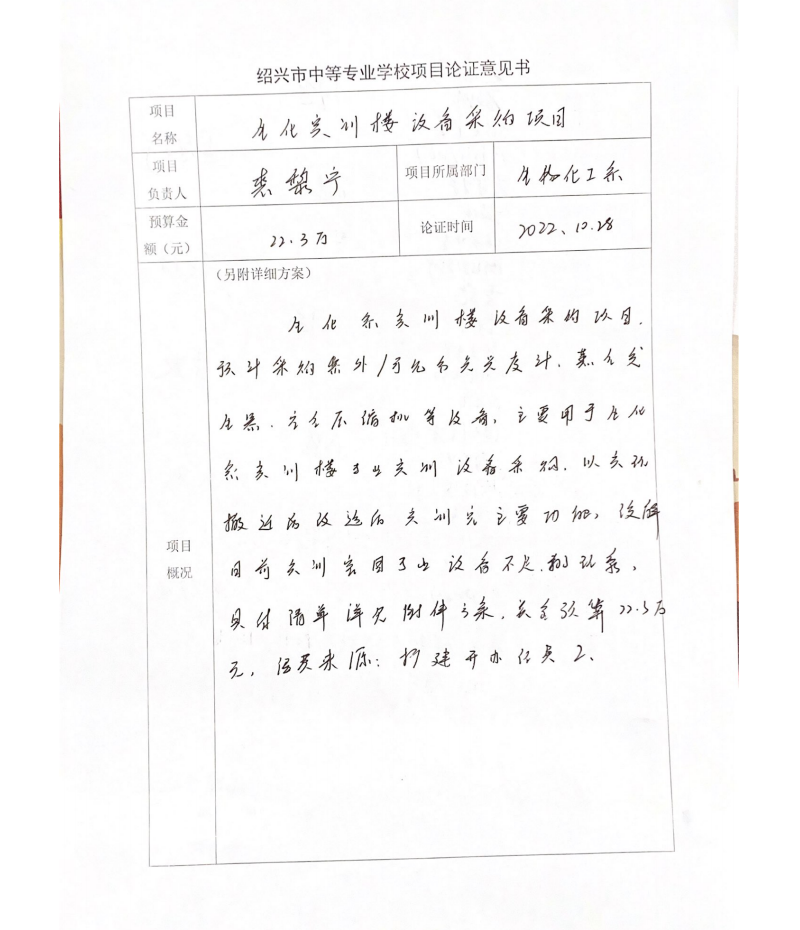 绍兴市中等专业学校项目论证意见书
项目名称 生化实训楼设备采购项目
项目负责人 裘黎宁 项目所属部门 生物化工系
预算金额（元） 22.3万 论证时间 2022、10.28
项目概况
（另附详细方案）
生化系实训楼设备采购项目.
预计采购紫外/可见分光光度计.
空气压缩机等设备，主要用于生化
系实训楼专业实训设备采购，以实现
搬迁后改造后实训室主要功能，缓解
目前实训室因专业设备不足
具体清单详见附件方案，资金预算22.3万
元，经费来源：